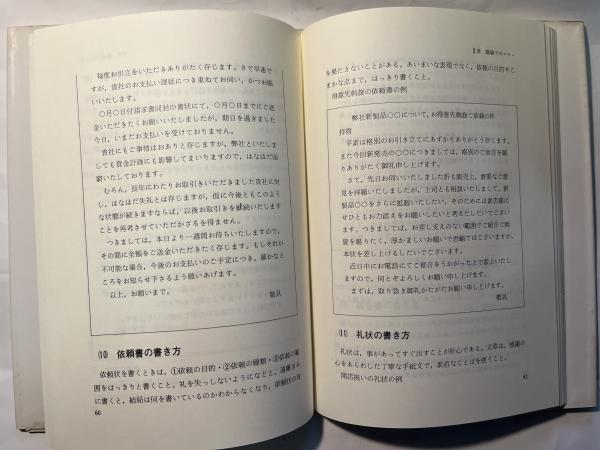 毎度お引立をいただきありがたく存じます。さて早速で
すが、貴社のお支払い遅延につき重ねてお伺い、かつお願
いいたします。
〇月〇日付請求書同封の書状にて、〇月〇日までにご送
金いただきたくお願いいたしましたが、期日を過ぎました
今日、いまだお支払いを受けておりません。
貴社にもご事情はおありと存じますが、弊社といたしま
しても資金計画にも影響してまいりますので、はなはだ困
窮いたしております。
むろん、長年にわたりお取引きいただきました貴社に対
し、はなはだ失礼とは存じますが、仮に今後ともこのよう
な状態が続きますならば、以後お取引きを継続いたします
ことを再考させていただかざるを得ません。
つきましては、本日より一週間お待ちいたしますので、
その間に全額をご送金いただきたく存じます。もしそれが
不可能な場合、今後のお支払いのご予定につき、確かなと
ころをお知らせ下さるよう願いあげます。
以上、お願いまで。
敬具
(10) 依頼書の書き方
依頼状を書くときは、①依頼の目的・②依頼の種類・③依頼の範
囲をはっきりと書くこと。礼を失しないようになどと、遠慮がち
に書くと、結局は何を書いているのかわからなくなり、依頼状の役
60
II章 職場での
を果たさないことがある。あいまいな表現でなく、依頼の目的やこ
まかな点まで、はっきり書くこと。
得意先斡旋の依頼書の例
弊社新製品〇〇について、お得意先斡旋ご依頼の件
拝啓
平素は格別のお引き立てにあずかりありがとう存じます。
また今回新発売の〇〇につきましては、格別のご密言を賜
りありがたく御礼申し上げます。
さて、先日お伺いいたしました折も販売上、貴重なご意
見を拝聴いたしましたが、上司とも相談いたしまして、新
製品〇〇をさらに拡販いたしたい、そのためには貴店様に
ぜひともお力添えをお願いしたいと考えたしだいでござい
ます。つきましては、お差し支えのない範囲でご紹介ご斡
旋を賜りたく、厚かましいお願いで恐縮ではございますが、
本状を差し上げるしだいでございます。
近日中にお電話にてご都合をうかがった上で参上いたし
ますので、何とぞよろしくお願い申し上げます。
まずは、取り急ぎ御礼かたがたお願い申し上げます。
敬具
(11) 礼状の書き方
礼状は、事があってすぐ出すことが肝心である。文章は、感謝の
心をあらわした丁寧な手紙文で、素直なことばを使うこと。
開店祝いの礼状の例
61